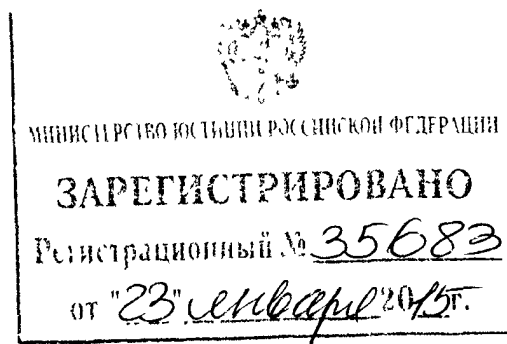 МИНИСТЕРСТВО ЮСТИЦИИ РОССИЙСКОЙ ФЕДЕРАЦИИ
ЗАРЕГИСТРИРОВАНО
Регистрационный № 35683
от "23" января 2015г.